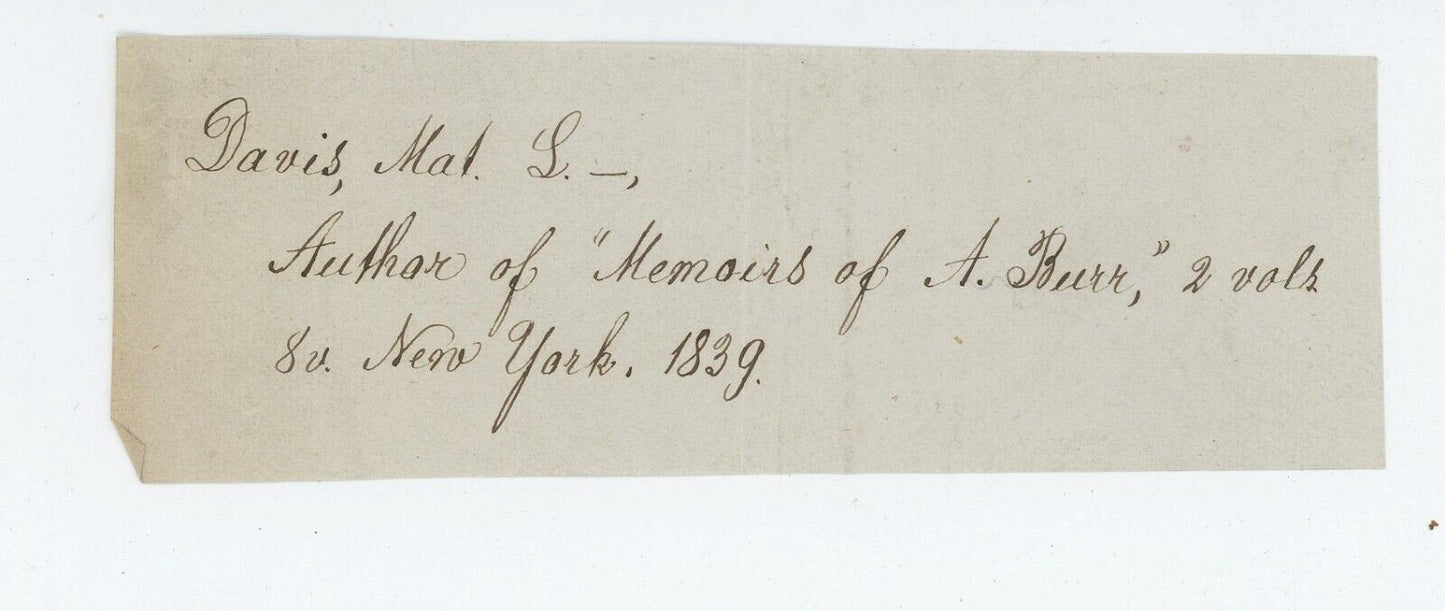 Davis, Mat. L. —,
Author of "Memoirs of A. Burr," 2 vols
8v. New York. 1839.